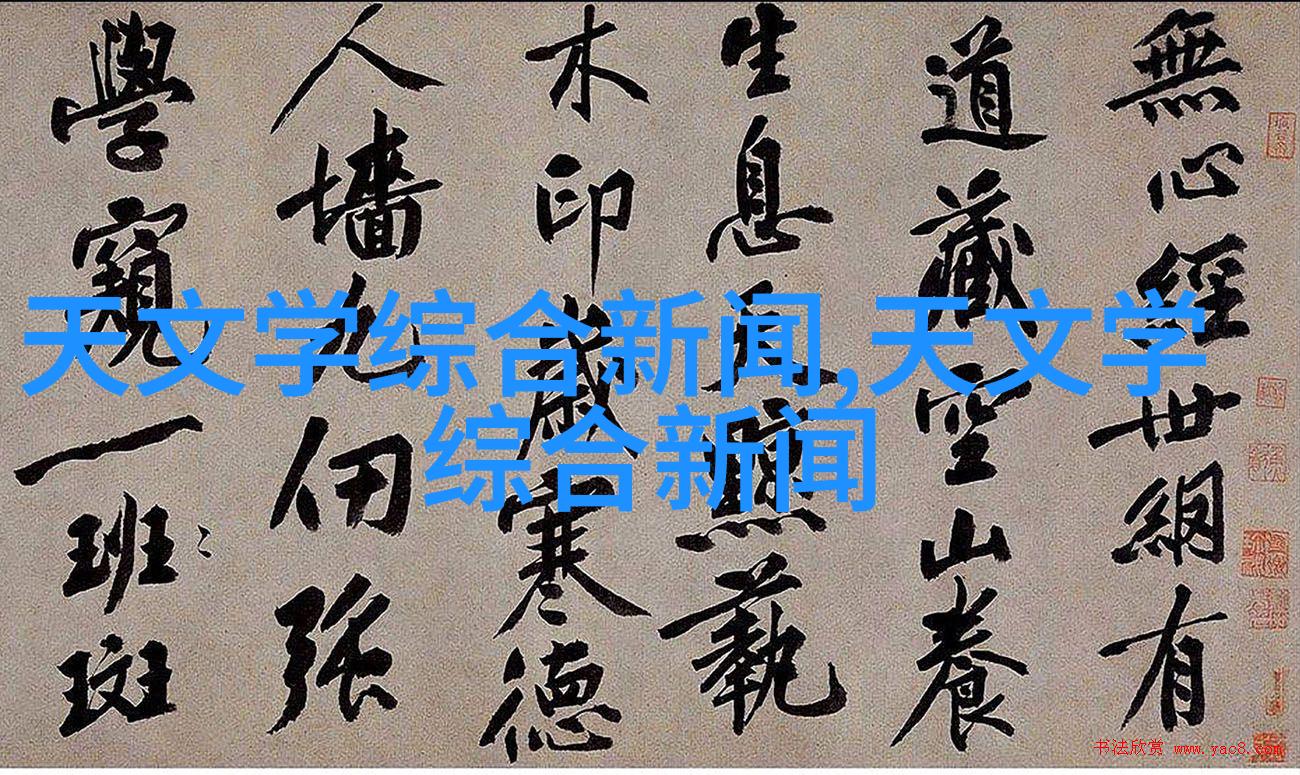 無心經世網有
道藏空山養
生息天黥藝
木印歲寒德
人墻九仞強
學窺一班斑
天文学综合新闻,天文学
综合新闻
书法欣赏 www.yac8.com